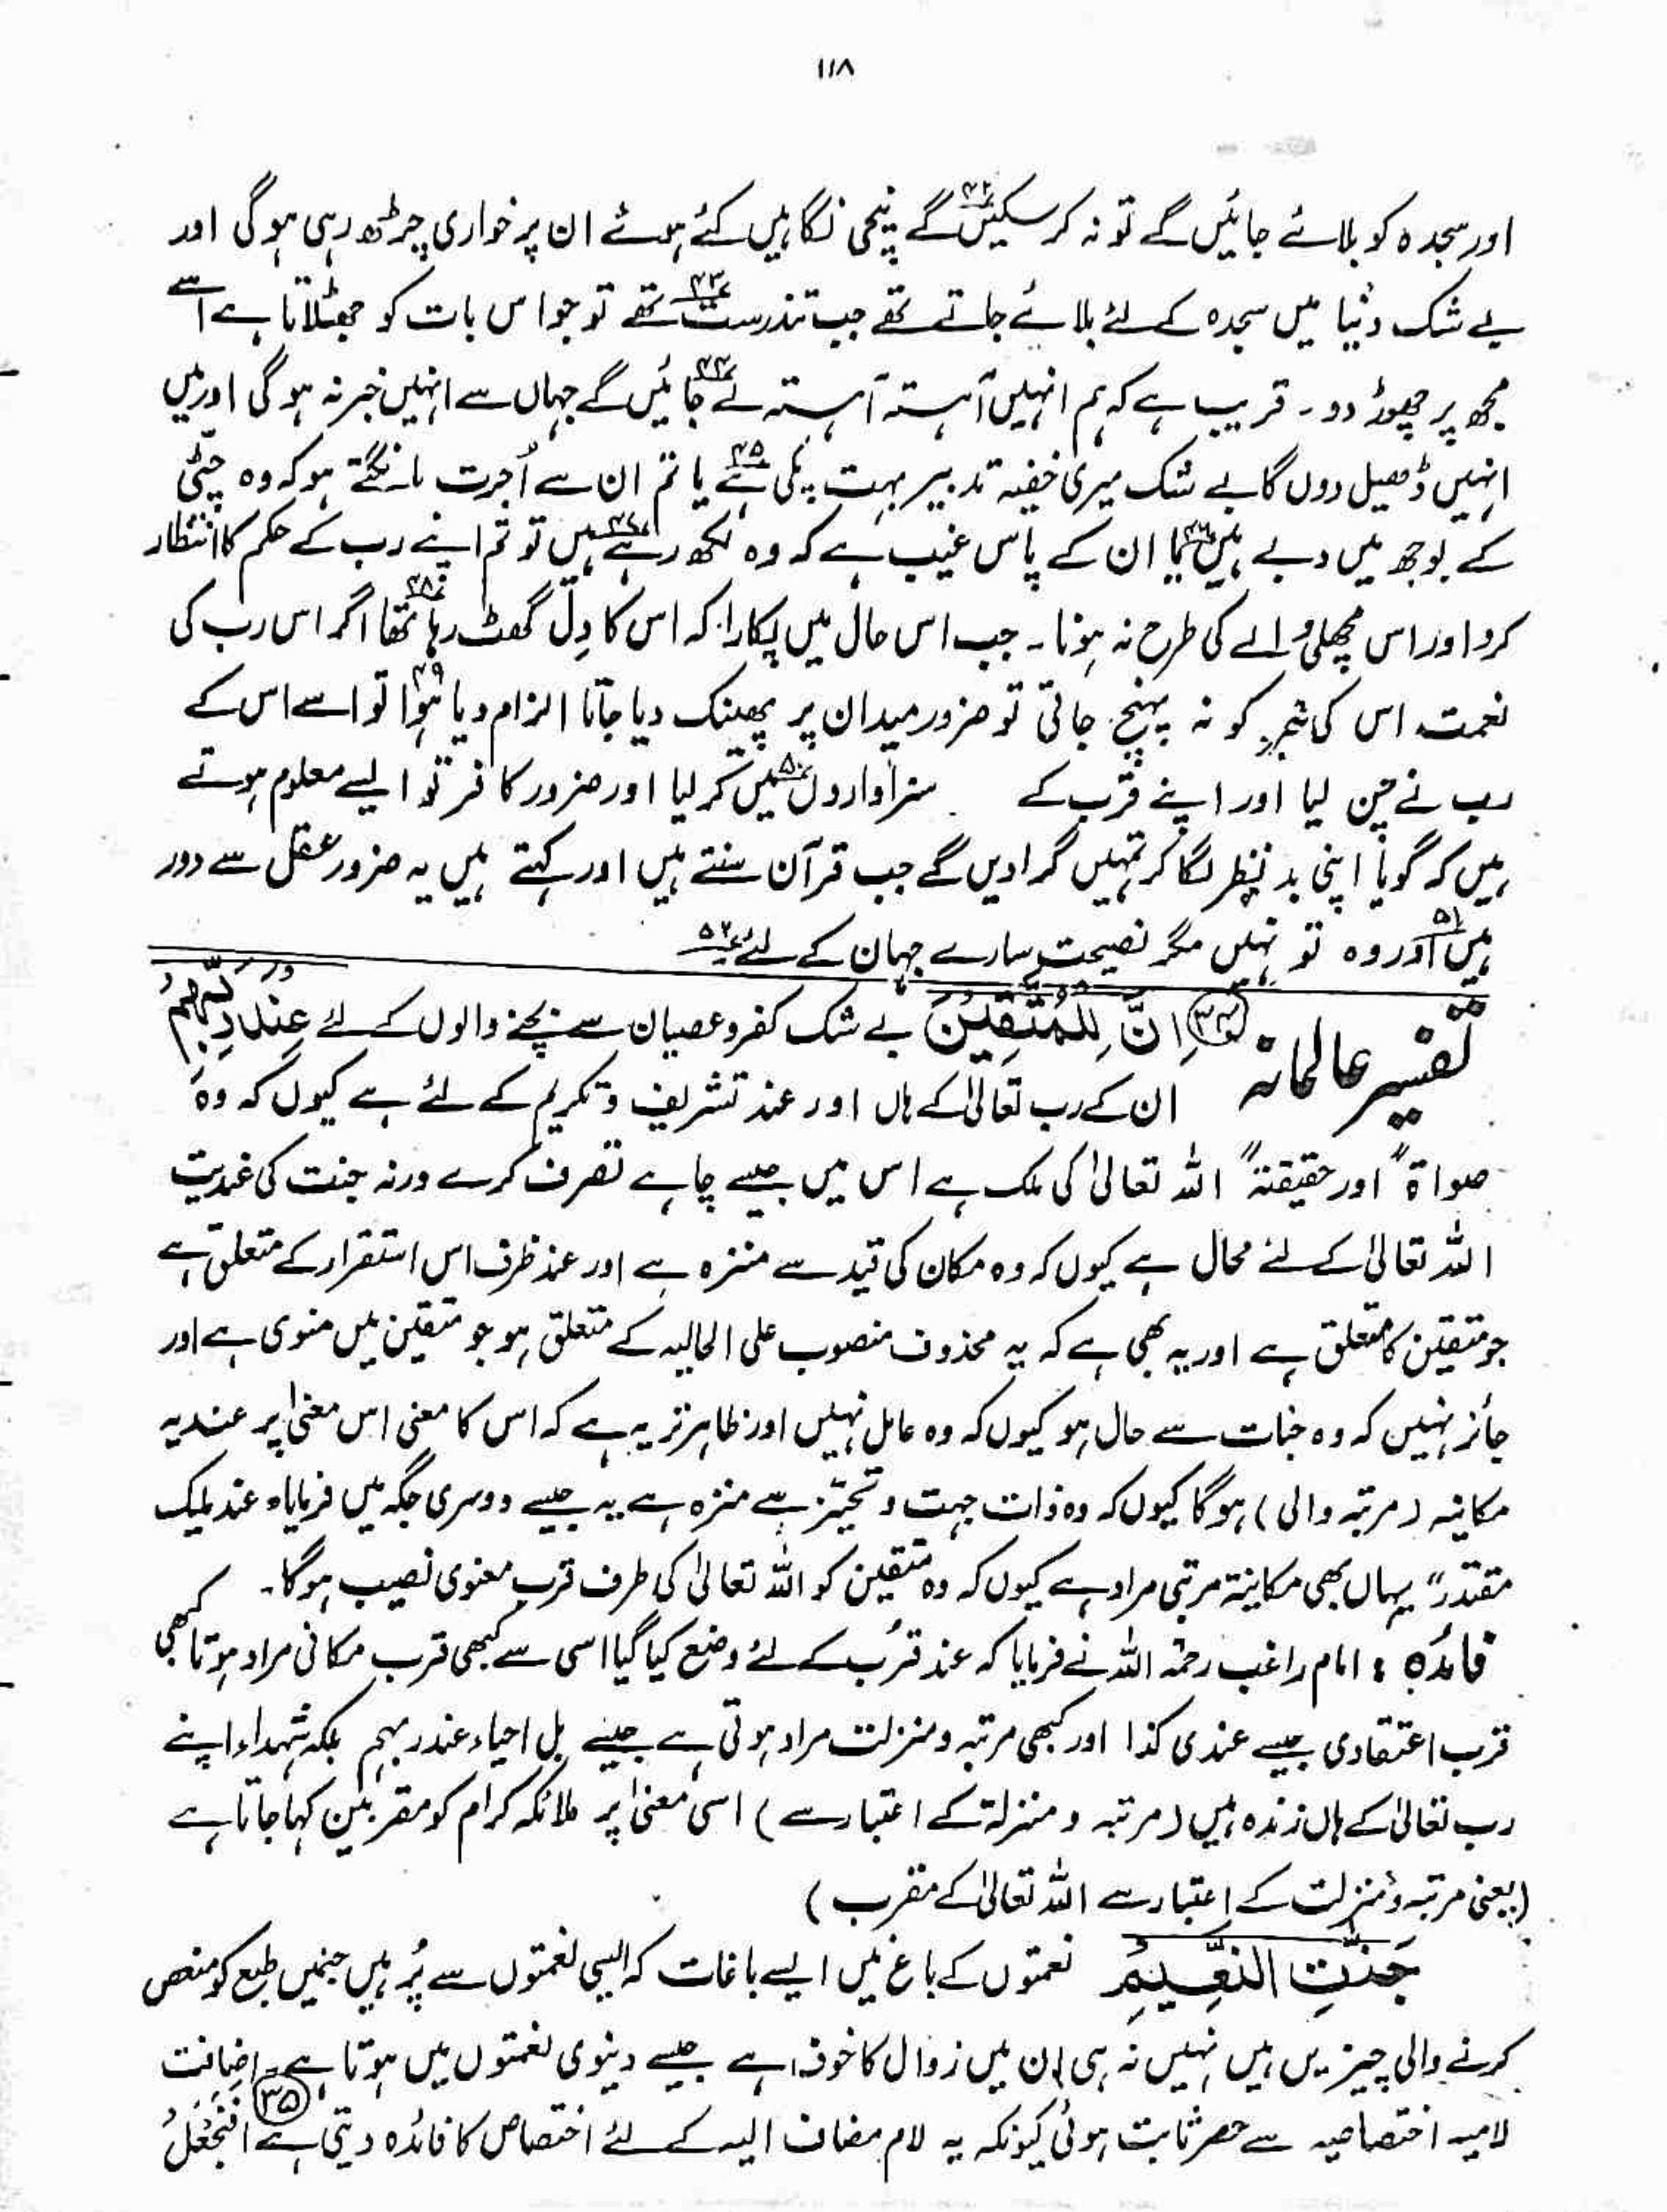 ۱۱۸
اور سجدہ کو بلائے جائیں گے تو نہ کر سکیں گے ۴۲ نیچی نگاہیں کئے ہوئے ان پر خواری چڑھ رہی ہو گی اور
بے شک دنیا میں سجدہ کے لئے بلائے جاتے تھے جب تندرست تھے ۴۳ تو جو اس بات کو جھٹلاتا ہے اسے
مجھ پر چھوڑ دو۔ قریب ہے کہ ہم انہیں آہستہ آہستہ لے جائیں گے ۴۴ جہاں سے انہیں خبر نہ ہو گی اور میں
انہیں ڈھیل دوں گا بے شک میری خفیہ تدبیر بہت پکی ہے ۴۵ یا تم ان سے اُجرت مانگتے ہو کہ وہ چٹی
کے بوجھ میں دبے ہیں ۴۶ یا ان کے پاس غیب ہے کہ وہ لکھ رہے ہیں ۴۷ تو تم اپنے رب کے حکم کا انتظار
کرو اور اس مچھلی والے کی طرح نہ ہونا۔ جب اس حال میں پکارا کہ اس کا دِل گھٹ رہا تھا ۴۸ اگر اس رب کی
نعمت اس کی خبر کو نہ پہنچ جاتی تو ضرور میدان پر پھینک دیا جاتا الزام دیا ہوا ۴۹ تو اسے اس کے
رب نے چن لیا اور اپنے قرب کے سزاواروں میں کر لیا ۵۰ اور ضرور کافر تو ایسے معلوم ہوتے
ہیں کہ گویا اپنی بد نظر لگا کر تمہیں گرا دیں گے جب قرآن سنتے ہیں اور کہتے ہیں یہ ضرور عقل سے دور
ہیں ۵۱ اور وہ تو نہیں مگر نصیحت سارے جہان کے لئے ۵۲
تفسیر عالمانہ ۳۴ اِنَّ لِلْمُتَّقِیْنَ بے شک کفر و عصیان سے بچنے والوں کے لئے عِنْدَ رَبِّهِمْ
ان کے رب تعالیٰ کے ہاں اور عند تشریف و تکریم کے لئے ہے کیوں کہ وہ
صواۃً اور حقیقتہً اللہ تعالیٰ کی ملک ہے اس میں جیسے چاہے تصرف کرے ورنہ جنت کی عندیت
اللہ تعالیٰ کے لئے محال ہے کیوں کہ وہ مکان کی قید سے منزہ ہے اور عند ظرف اس استقرار کے متعلق ہے
جو متقین کا متعلق ہے اور یہ بھی ہے کہ یہ محذوف منصوب علی الحالیہ کے متعلق ہو جو متقین میں منوی ہے اور
جائز نہیں کہ وہ جنات سے حال ہو کیوں کہ وہ عامل نہیں اور ظاہر تر یہ ہے کہ اس کا معنی اس معنیٰ پر عندیہ
مکانیہ (مرتبہ والی) ہو گا کیوں کہ وہ ذات جہت و تحیّز سے منزہ ہے یہ جیسے دوسری جگہ میں فرمایا، عند ملیک
مقتدر" یہاں بھی مکانیۃ مرتبی مراد ہے کیوں کہ وہ متقین کو اللہ تعالیٰ کی طرف قرب معنوی نصیب ہو گا۔
فائدہ : امام راغب رحمہ اللہ نے فرمایا کہ عند قرب کے لئے وضع کیا گیا اسی سے کبھی قرب مکانی مراد ہوتا کبھی
قرب اعتقادی جیسے عندی کذا اور کبھی مرتبہ و منزلت مراد ہوتی ہے جیسے بل احیاء عند ربہم بلکہ شہداء اپنے
رب تعالیٰ کے ہاں زندہ ہیں (مرتبہ و منزلۃ کے اعتبار سے) اسی معنیٰ پر ملائکہ کرام کو مقربین کہا جاتا ہے
(یعنی مرتبہ و منزلت کے اعتبار سے اللہ تعالیٰ کے مقرب)
جَنّٰتِ النَّعِیْمِ نعمتوں کے باغ میں ایسے باغات کہ ایسی نعمتوں سے پُر ہیں جنمیں طبع کو منغص
کرنے والی چیزیں ہیں نہیں نہ ہی ان میں زوال کا خوف ہے جیسے دینوی نعمتوں میں ہوتا ہے۔ اضافت
لامیہ اختصاصیہ سے حصر ثابت ہوئی کیونکہ یہ لام مضاف الیہ کے لئے اختصاص کا فائدہ دیتی ہے ۳۵ اَفَنَجْعَلُ